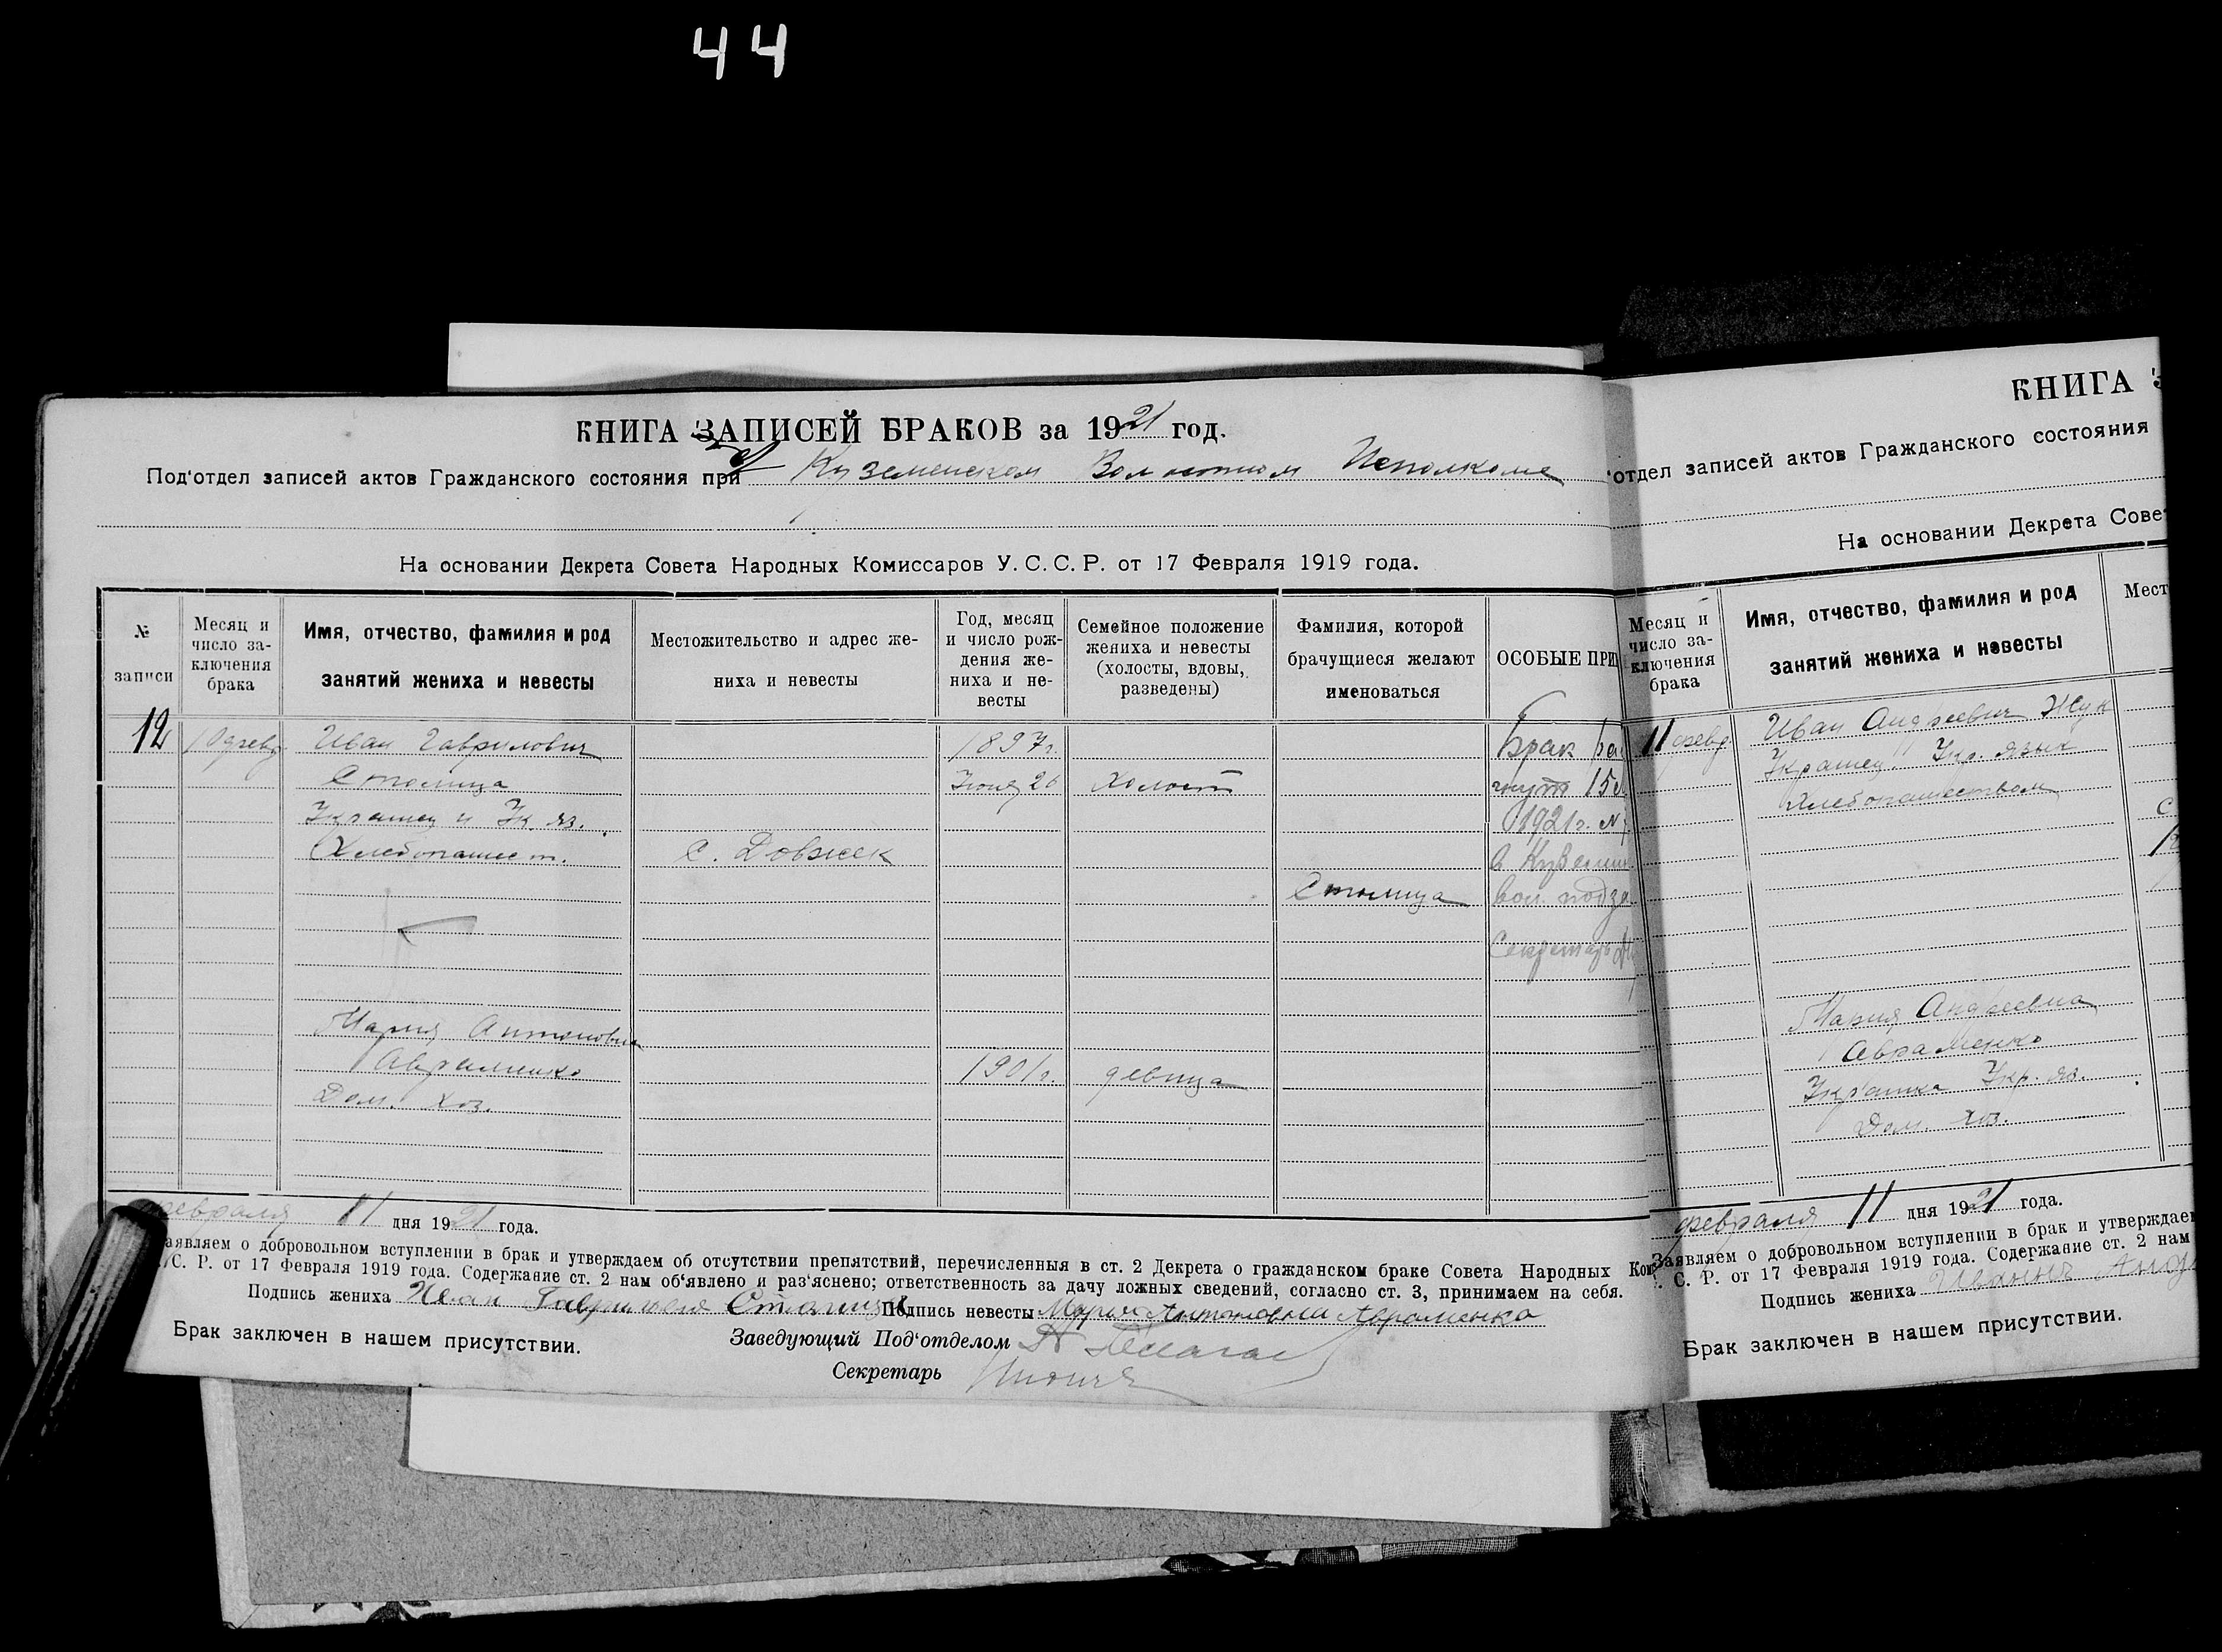 44
КНИГА ЗАПИСЕЙ БРАКОВ за 1921 год.
Под'отдел записей актов Гражданского состояния при Куземенском Волостном Исполкоме
На основании Декрета Совета Народных Комиссаров У. С. С. Р. от 17 Февраля 1919 года.
№ записи
Месяц и число за-
ключения
брака
Имя, отчество, фамилия и род
занятий жениха и невесты
Местожительство и адрес же-
ниха и невесты
Год, месяц
и число рож-
дения же-
ниха и не-
весты
Семейное положение
жениха и невесты
(холосты, вдовы,
разведены)
Фамилия, которой
брачущиеся желают
именоваться
ОСОБЫЕ ПРИ
12 10 февр. Иван Гаврилович 1897г. Брак ра
Столица Июня 26 холост 15
Украинец и Ук. яз. 1921г. №
Хлебопашест. С. Довжек в Куземин
Столица вол. подза
Секретарь
Мария Антоновна
Авраменко 1901г. девица
Дом. хоз.
февраля 11 дня 1921 года.
Заявляем о добровольном вступлении в брак и утверждаем об отсутствии препятствий, перечисленныя в ст. 2 Декрета о гражданском браке Совета Народных Ком
С. Р. от 17 Февраля 1919 года. Содержание ст. 2 нам об'явлено и раз'яснено; ответственность за дачу ложных сведений, согласно ст. 3, принимаем на себя.
Подпись жениха Иван Гаврилович Столица Подпись невесты Мария Антоновна Авраменко
Брак заключен в нашем присутствии.
Заведующий Под'отделом
Секретарь
КНИГА З
'отдел записей актов Гражданского состояния
На основании Декрета Сове
Месяц и
число за-
ключения
брака
Имя, отчество, фамилия и род
занятий жениха и невесты
Мест
11 февр Иван Андреевич Жук
Украинец Укр. язык
Хлебопашеством
С
Мария Андреевна
Авраменко
Украинка Укр. яз.
Дом. хоз.
февраля 11 дня 1921 года.
Заявляем о добровольном вступлении в брак и утверждаем
С. Р. от 17 Февраля 1919 года. Содержание ст. 2 нам
Подпись жениха
Брак заключен в нашем присутствии.